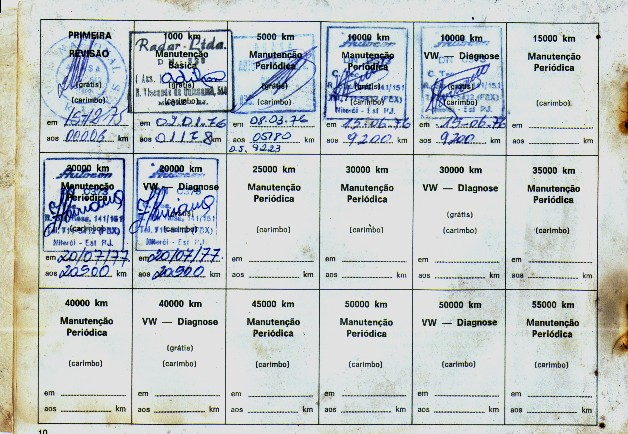 PRIMEIRA
REVISÃO
(grátis)
(carimbo)
em 15/12/75
aos 00006 km
1000 km
Radar-Ltda.
Manutenção
Básica
(grátis)
(carimbo)
em 02.01.76
aos 01178 km
5000 km
Manutenção
Periódica
(carimbo)
em 08.03.76
aos 05780 km
O.S. 9223
10000 km
Manutenção
Periódica
(carimbo)
Niterói - Est. R.J.
em 15-06-76
aos 9200 km
10000 km
VW — Diagnose
(grátis)
(carimbo)
Niterói - Est. R.J.
em 15-06-76
aos 9200 km
15000 km
Manutenção
Periódica
(carimbo)
em
aos km
20000 km
Manutenção
Periódica
(carimbo)
Niterói - Est R.J.
em 20/07/77
aos 20900 km
20000 km
VW — Diagnose
(carimbo)
Niterói - Est R.J.
em 20/07/77
aos 20.900 km
25000 km
Manutenção
Periódica
(carimbo)
em
aos km
30000 km
Manutenção
Periódica
(carimbo)
em
aos km
30000 km
VW — Diagnose
(grátis)
(carimbo)
em
aos km
35000 km
Manutenção
Periódica
(carimbo)
em
aos km
40000 km
Manutenção
Periódica
(carimbo)
em
aos km
40000 km
VW — Diagnose
(grátis)
(carimbo)
em
aos km
45000 km
Manutenção
Periódica
(carimbo)
em
aos km
50000 km
Manutenção
Periódica
(carimbo)
em
aos km
50000 km
VW — Diagnose
(carimbo)
em
aos km
55000 km
Manutenção
Periódica
(carimbo)
em
aos km
10